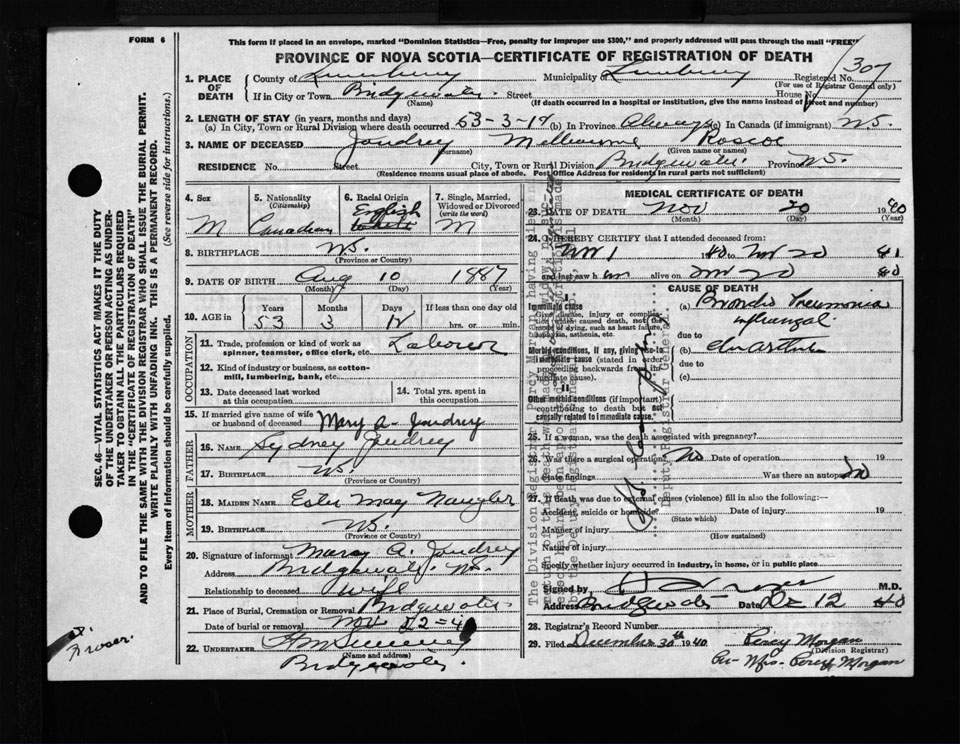 FORM 6
This form if placed in an envelope, marked "Dominion Statistics—Free, penalty for improper use $300," and properly addressed will pass through the mail "FREE"
PROVINCE OF NOVA SCOTIA—CERTIFICATE OF REGISTRATION OF DEATH
307
1. PLACE OF DEATH County of Lunenburg Municipality of Lunenburg Registered No.
(For use of Registrar General only)
If in City or Town Bridgewater Street House No.
(Name) (If death occurred in a hospital or institution, give the name instead of street and number)
2. LENGTH OF STAY (in years, months and days)
(a) In City, Town or Rural Division where death occurred 53-3-1 (b) In Province Always (c) In Canada (if immigrant) N.S.
3. NAME OF DECEASED Joudrey Melbourne Roscoe
(Surname) (Given name or names)
RESIDENCE No. Street City, Town or Rural Division Bridgewater Province N.S.
(Residence means usual place of abode. Post Office Address for residents in rural parts not sufficient)
4. Sex M
5. Nationality (Citizenship) Canadian
6. Racial Origin English White
7. Single, Married, Widowed or Divorced (write the word) M
8. BIRTHPLACE N.S.
(Province or Country)
9. DATE OF BIRTH Aug 10 1887
(Month) (Day) (Year)
10. AGE in Years Months Days If less than one day
53 3 hrs. or min.
OCCUPATION
11. Trade, profession or kind of work as spinner, teamster, office clerk, etc. Laborer
12. Kind of industry or business, as cotton-mill, lumbering, bank, etc.
13. Date deceased last worked at this occupation
14. Total yrs. spent in this occupation
15. If married give name of wife or husband of deceased Mary A. Joudrey
FATHER
16. NAME Sydney Joudrey
17. BIRTHPLACE N.S.
(Province or Country)
MOTHER
18. MAIDEN NAME Ester May Naugler
19. BIRTHPLACE N.S.
(Province or Country)
20. Signature of informant Mary A. Joudrey
Address Bridgewater N.S.
Relationship to deceased Wife
21. Place of Burial, Cremation or Removal Bridgewater
Date of burial or removal Nov
22. UNDERTAKER
(Name and address)
Bridgewater.
MEDICAL CERTIFICATE OF DEATH
23. DATE OF DEATH Nov 20 1940
(Month) (Day) (Year)
24. I HEREBY CERTIFY that I attended deceased from:
Nov 1 1940 to Nov 20
and last saw h im alive on Nov 20 40
CAUSE OF DEATH
Immediate cause
Give disease, injury or complication which caused death, not the mode of dying, such as heart failure, asphyxia, asthenia, etc.
(a) Broncho Pneumonia
due to
Morbid conditions, if any, giving rise to immediate cause (stated in order proceeding backwards from immediate cause).
(b)
due to
(c)
Other morbid conditions (if important) contributing to death but not causally related to immediate cause.
25. If a woman, was the death associated with pregnancy?
26. Was there a surgical operation? No Date of operation 19
State findings Was there an autopsy? No
27. If death was due to external causes (violence) fill in also the following:—
Accident, suicide or homicide? Date of injury 19
(State which)
Manner of injury
(How sustained)
Nature of injury
Specify whether injury occurred in industry, in home, or in public place
Signed by M.D.
Address Bridgewater Date Dec 12 40
28. Registrar's Record Number
29. Filed December 30th 1940 Percy Morgan
(Division Registrar)
Per Mrs. Percy Morgan
SEC. 46—VITAL STATISTICS ACT MAKES IT THE DUTY
OF THE UNDERTAKER OR PERSON ACTING AS UNDERTAKER TO OBTAIN ALL THE PARTICULARS REQUIRED
IN THE "CERTIFICATE OF REGISTRATION OF DEATH"
AND TO FILE THE SAME WITH THE DIVISION REGISTRAR WHO SHALL ISSUE THE BURIAL PERMIT.
WRITE PLAINLY WITH UNFADING INK. THIS IS A PERMANENT RECORD.
Every item of information should be carefully supplied. (See reverse side for instructions.)
Deputy Registrar General.